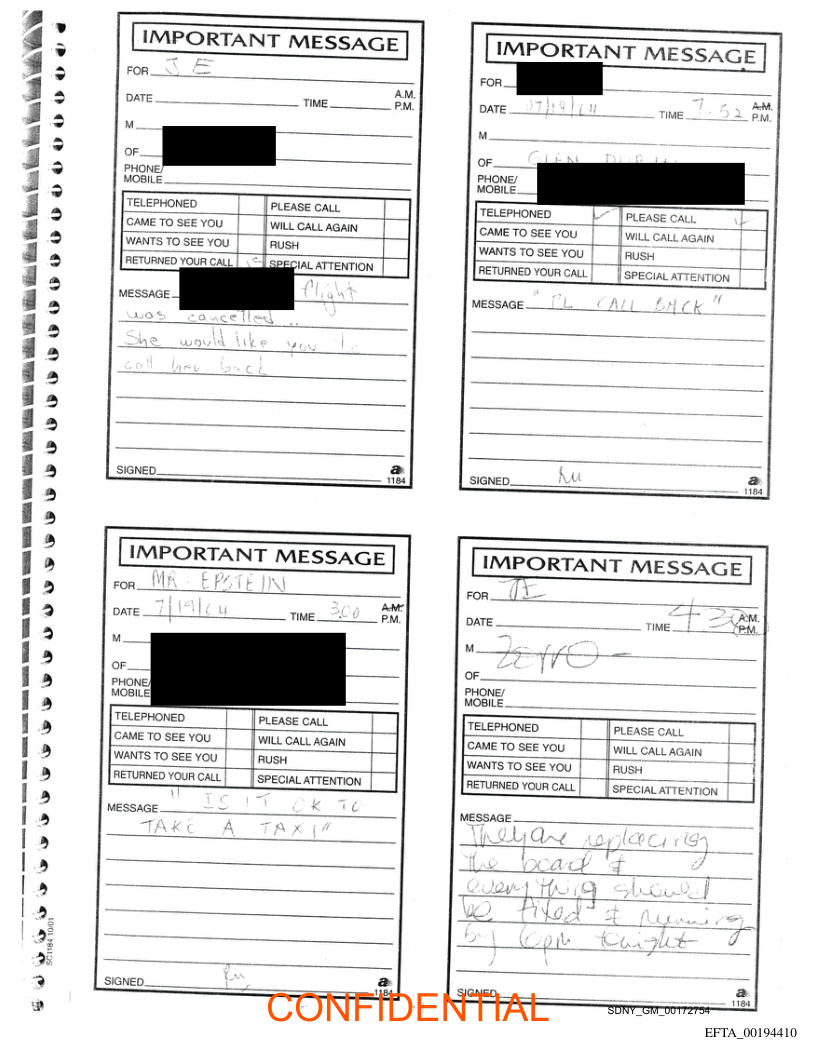 IMPORTANT MESSAGE
FOR J E
DATE TIME A.M. P.M.
M
OF
PHONE/ MOBILE
TELEPHONED PLEASE CALL
CAME TO SEE YOU WILL CALL AGAIN
WANTS TO SEE YOU RUSH
RETURNED YOUR CALL ✓ SPECIAL ATTENTION
MESSAGE flight
was cancelled ..
She would like you to
call her back
SIGNED
a 1184
IMPORTANT MESSAGE
FOR
DATE 07/19/04 TIME 7.52 A.M. P.M.
M
OF GLEN
PHONE/ MOBILE
TELEPHONED ✓ PLEASE CALL ✓
CAME TO SEE YOU WILL CALL AGAIN
WANTS TO SEE YOU RUSH
RETURNED YOUR CALL SPECIAL ATTENTION
MESSAGE "PL CALL BACK"
SIGNED
a 1184
IMPORTANT MESSAGE
FOR MR. EPSTEIN
DATE 7/19/04 TIME 3.00 A.M. P.M.
M
OF
PHONE/ MOBILE
TELEPHONED PLEASE CALL
CAME TO SEE YOU WILL CALL AGAIN
WANTS TO SEE YOU RUSH
RETURNED YOUR CALL SPECIAL ATTENTION
MESSAGE " IS IT OK TO
TAKE A TAXI"
SIGNED
a 1184
IMPORTANT MESSAGE
FOR JE
DATE TIME 4:30 A.M. P.M.
M
OF
PHONE/ MOBILE
TELEPHONED PLEASE CALL
CAME TO SEE YOU WILL CALL AGAIN
WANTS TO SEE YOU RUSH
RETURNED YOUR CALL SPECIAL ATTENTION
MESSAGE
They are replacing
the board &
everything should
be fixed & running
by 6pm tonight
SIGNED
a 1184
SC1184 10/01
CONFIDENTIAL
SDNY_GM_00172754
EFTA_00194410